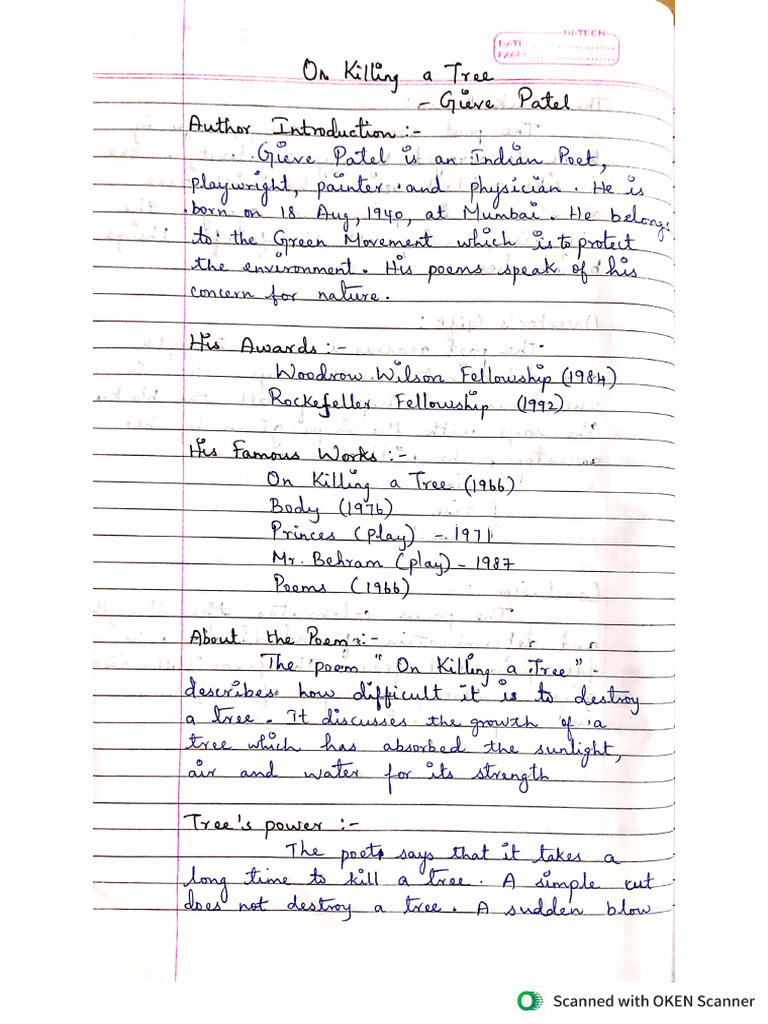 HI-TECH
DATE
PAGE
On Killing a Tree
- Gieve Patel
Author Introduction :-
Gieve Patel is an Indian Poet,
playwright, painter and physician. He is
born on 18 Aug, 1940, at Mumbai. He belong
to the Green Movement which is to protect
the environment. His poems speak of his
concern for nature.
His Awards :-
Woodrow Wilson Fellowship (1984)
Rockefeller Fellowship (1992)
His Famous Works :-
On Killing a Tree (1966)
Body (1976)
Princes (play) - 1971
Mr. Behram (play) - 1987
Poems (1966)
About the Poem :-
The poem "On Killing a Tree"
describes how difficult it is to destroy
a tree. It discusses the growth of a
tree which has absorbed the sunlight,
air and water for its strength
Tree's power :-
The poet says that it takes a
long time to kill a tree. A simple cut
does not destroy a tree. A sudden blow
Scanned with OKEN Scanner